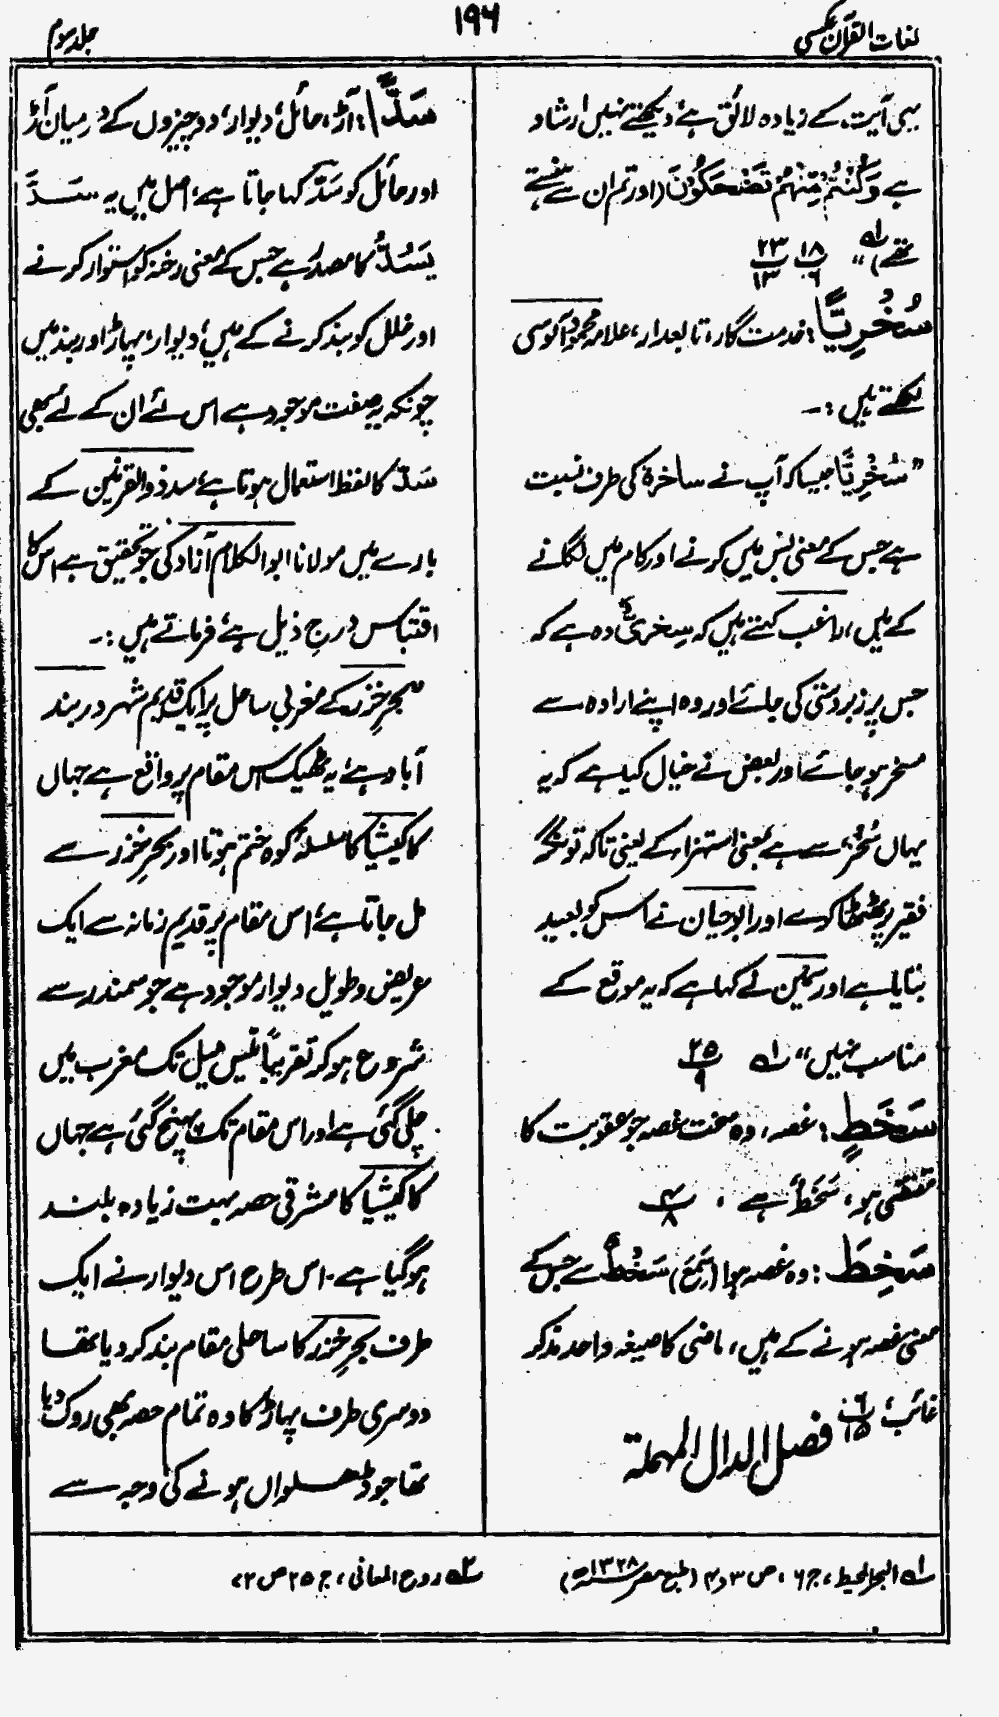 لغات القرآن عکسی
۱۹۶
جلد سوم
یہی آیت کے زیادہ لائق ہے، دیکھتے نہیں ارشاد
ہے وَكُنْتُمْ مِّنْهُمْ تَضْحَكُوْنَ (اور تم ان سے ہنستے
تھے)" لہ ۱۸/۶ ۲۳/۱۳
سُخْرِيًّا: خدمت گار، تابعدار، علامہ محمود آلوسی
لکھتے ہیں:۔
"سُخْرِيًّا جیسا کہ آپ نے ساخرۃ کی طرف نسبت
ہے جس کے معنی بس میں کرنے اور کام میں لگانے
کے ہیں، راغب کہتے ہیں کہ سخری وہ ہے کہ
جس پر زبردستی کی جائے اور وہ اپنے ارادہ سے
مسخر ہو جائے اور بعض نے خیال کیا ہے کہ یہ
یہاں سُخْر سے ہے بمعنی استہزاء کے یعنی تاکہ تونگر
فقیر پر ٹھٹھا کرے اور ابوحیان نے اس کو بعید
بتایا ہے اور سمین نے کہا ہے کہ یہ موقع کے
مناسب نہیں" لہ ۲۵/۹
سَخَطٍ: غصہ، وہ سخت غصہ جو عقوبت کا
مقتضی ہو، سَخَطٌ ہے، ۴/۸
سَخِطَ: وہ غصہ ہوا (سَمِعَ) سَخُطٌ سے جس کے
معنی غصہ ہونے کے ہیں، ماضی کا صیغہ واحد مذکر
غائب، ۶/۱۵
فصل الدال المہملۃ
سَدًّا: آڑ، حائل، دیوار، دو چیزوں کے درمیان آڑ
اور حائل کو سَدّ کہا جاتا ہے، اصل میں یہ سَدَّ
يَسُدُّ کا مصدر ہے جس کے معنی رخنہ کو استوار کرنے
اور خلل کو بند کرنے کے ہیں، دیوار، پہاڑ اور بند میں
چونکہ یہ صفت موجود ہے اس لئے ان کے لئے بھی
سَدّ کا لفظ استعمال ہوتا ہے، سد ذوالقرنین کے
بارے میں مولانا ابوالکلام آزاد کی جو تحقیق ہے اس کا
اقتباس درج ذیل ہے، فرماتے ہیں:۔
"بحرِ خزر کے مغربی ساحل پر ایک قدیم شہر دربند
آباد ہے، یہ ٹھیک اس مقام پر واقع ہے جہاں
کاکیشیا کا سلسلۂ کوہ ختم ہوتا اور بحرِ خزر سے
مل جاتا ہے، اس مقام پر قدیم زمانہ سے ایک
عریض و طویل دیوار موجود ہے جو سمندر سے
شروع ہو کر تقریباً تیس میل تک مغرب میں
چلی گئی ہے اور اس مقام تک پہنچ گئی ہے جہاں
کاکیشیا کا مشرقی حصہ بہت زیادہ بلند
ہو گیا ہے۔ اس طرح اس دیوار نے ایک
طرف بحرِ خزر کا ساحلی مقام بند کر دیا تھا
دوسری طرف پہاڑ کا وہ تمام حصہ بھی روک دیا
تھا جو ڈھلواں ہونے کی وجہ سے
لہ البحر المحیط، ج ۶، ص ۳ و ۴ (طبع مصر ۱۳۲۸ھ)
۲ہ روح المعانی، ج ۲۵ ص ۷۲،